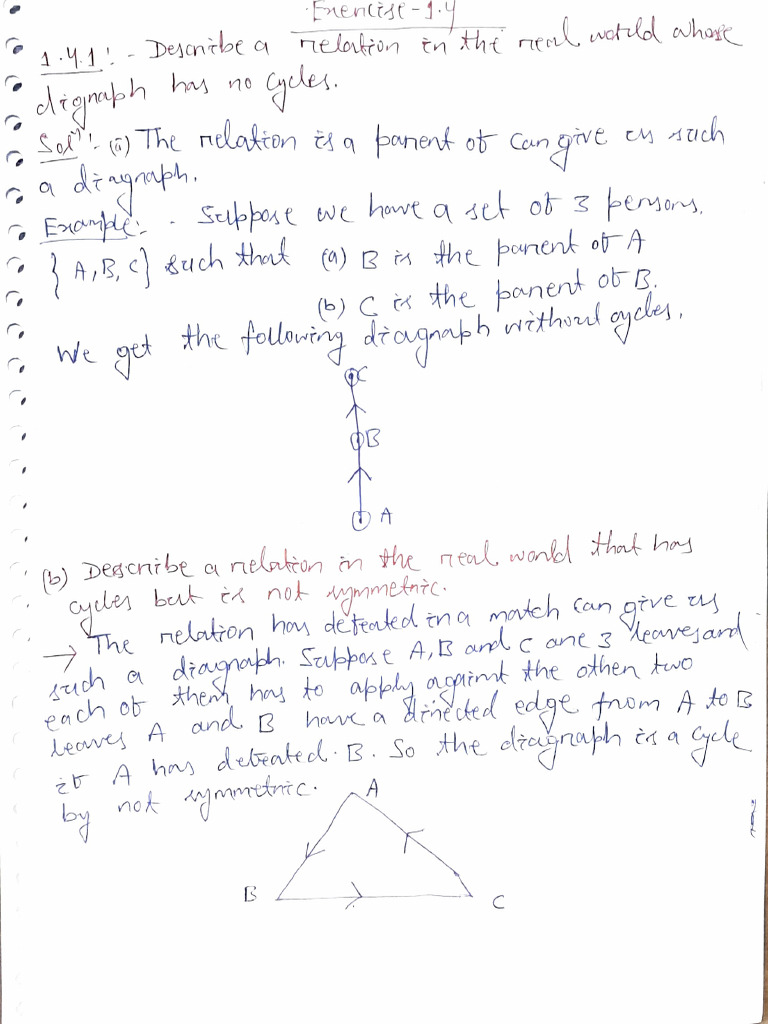 Exercise-1.4
1.4.1:- Describe a relation in the real world whose
digraph has no cycles.
Solⁿ:- (a) The relation is a parent of can give us such
a diagraph.
Example:- Suppose we have a set of 3 persons.
{A, B, C} such that (a) B is the parent of A
(b) C is the parent of B.
We get the following diagraph without cycles.
C
B
A
(b) Describe a relation in the real world that has
cycles but is not symmetric.
→ The relation has defeated in a match can give us
such a diagraph. Suppose A, B and C are 3 leaves and
each of them has to apply against the other two
leaves A and B have a directed edge from A to B
if A has defeated B. So the diagraph is a cycle
by not symmetric.
A
B
C